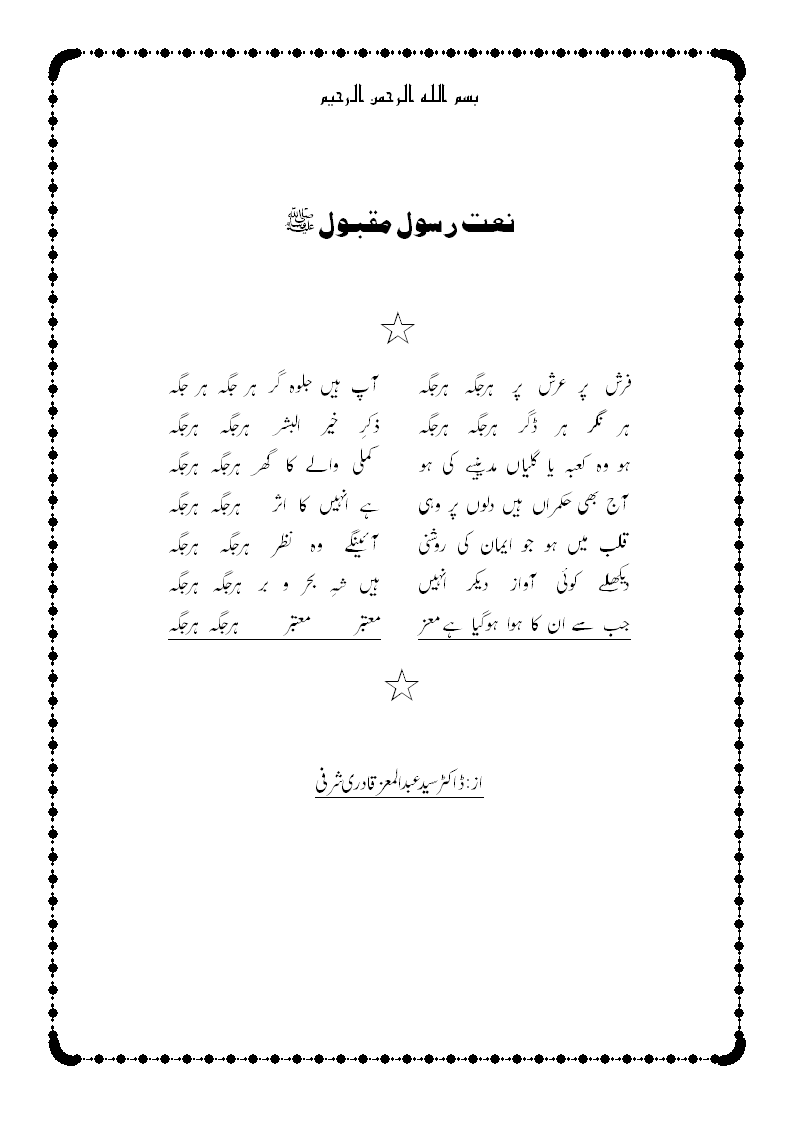 بسم الله الرحمن الرحيم
نعت رسول مقبول ﷺ
فرش پر عرش پر ہرجگہ ہرجگہ آپ ہیں جلوہ گر ہر جگہ ہر جگہ
ہر نگر ہر ڈگر ہرجگہ ہرجگہ ذکرِ خیر البشر ہرجگہ ہرجگہ
ہو وہ کعبہ یا گلیاں مدینے کی ہو کملی والے کا گھر ہرجگہ ہرجگہ
آج بھی حکمراں ہیں دلوں پر وہی ہے انہیں کا اثر ہرجگہ ہرجگہ
قلب میں ہو جو ایمان کی روشنی آئینگے وہ نظر ہرجگہ ہرجگہ
دیکھلے کوئی آواز دیکر انہیں ہیں شہِ بحر و بر ہرجگہ ہرجگہ
جب سے ان کا ہوا ہوگیا ہے معز معتبر معتبر ہرجگہ ہرجگہ
از: ڈاکٹر سید عبدالمعز قادری شرفی